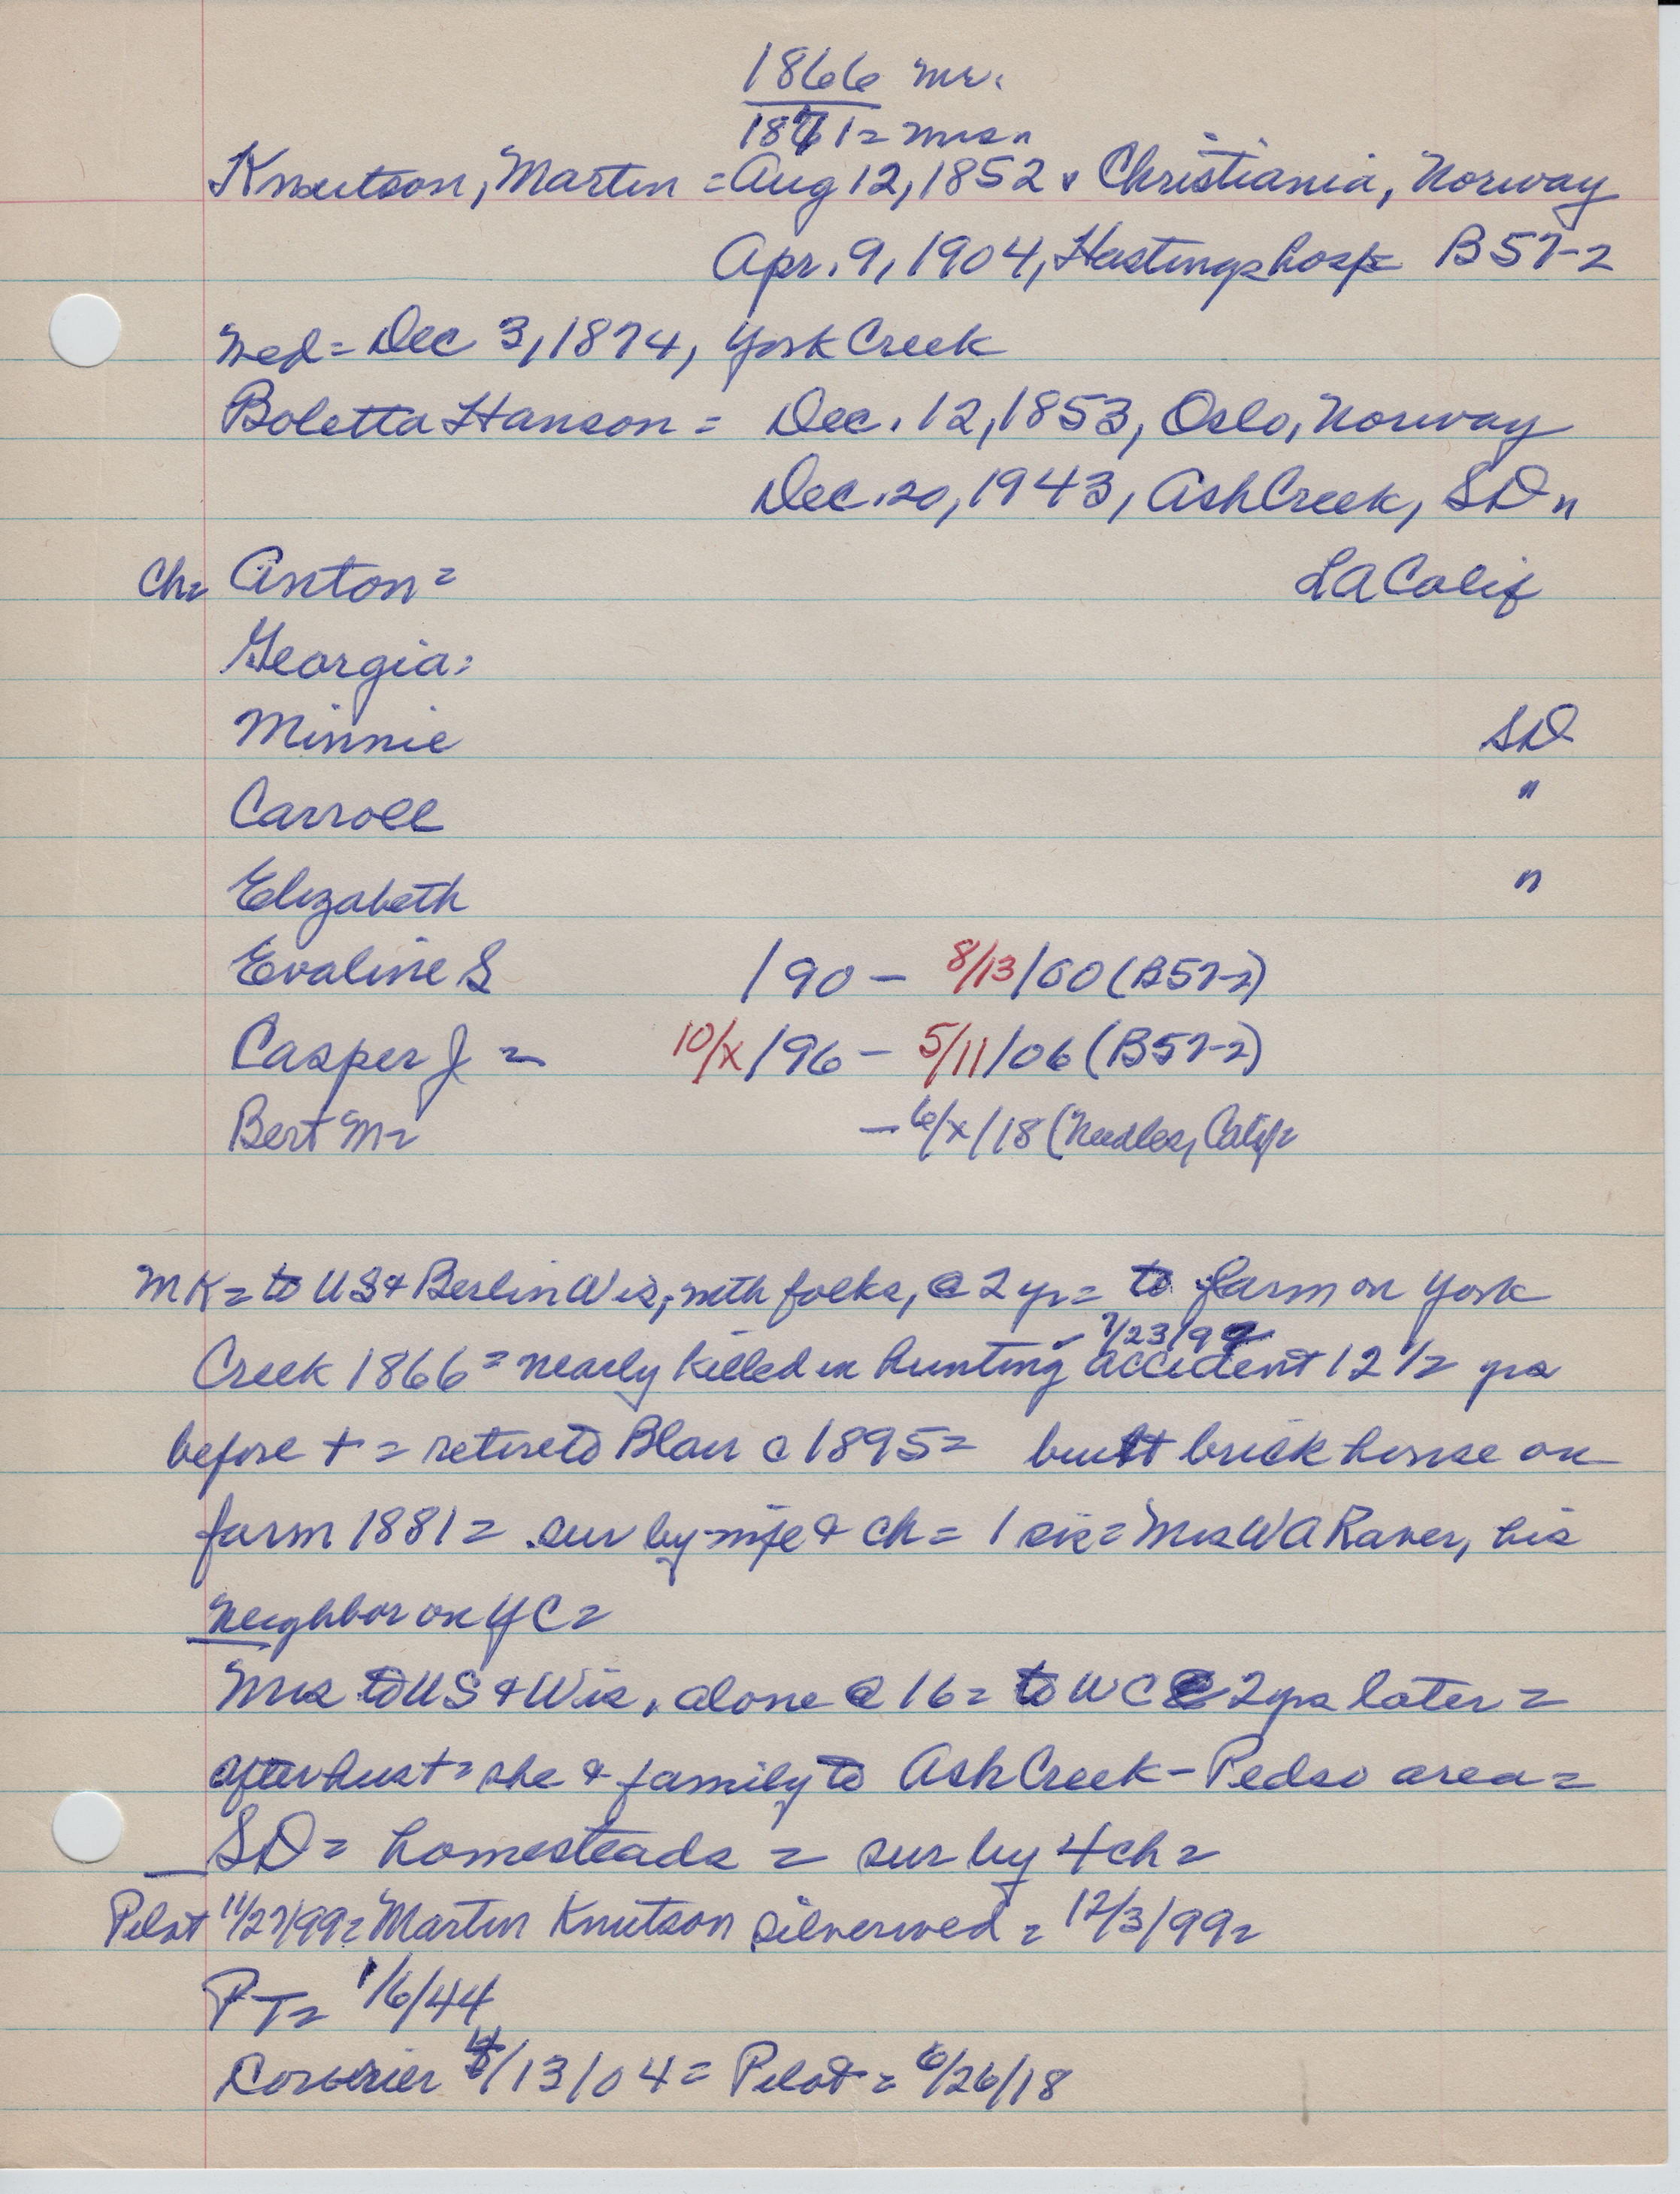 1866 Mr.
1871= Mrs "
Knutson, Martin = Aug 12, 1852, Christiania, Norway
Apr. 9, 1904, Hastings hosp= B57-2
Wed = Dec 3, 1874, York Creek
Boletta Hanson = Dec. 12, 1853, Oslo, Norway
Dec. 20, 1943, Ash Creek, SD "
Ch= Anton = LA Calif
Georgia =
Minnie SD
Carroll "
Elizabeth "
Evaline S /90 - 8/13/00 (B57-2)
Casper J = 10/x/96 - 5/11/06 (B57-2)
Bert M= - 6/x/18 (Needles, Calif=
MK= to US & Berlin Wis, with folks, @ 2 yr= to farm on York
7/23/92
Creek 1866 = nearly killed in hunting accident 12 1/2 yrs
before + = retire to Blair c 1895 = built brick house on
farm 1881 = sur by wife & ch = 1 sis = Mrs WA Raver, his
neighbor on YC =
Mrs to US & Wis, alone @ 16 = to WC @ 2 yrs later =
after hus + = she & family to Ash Creek - Pedro area =
SD = homesteads = sur by 4 ch =
Pilot 11/27/99 = Martin Knutson silver wed = 12/3/99 =
PT= 1/6/44
Courier 4/13/04 = Pilot = 6/26/18